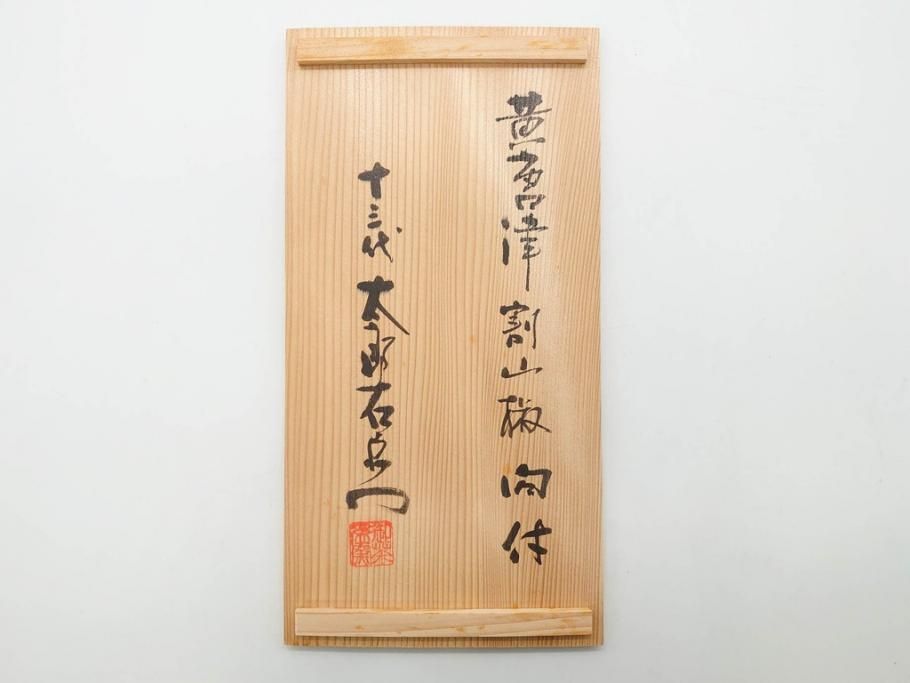 黄唐津 割山椒 向付
十三代 太郎右衛門